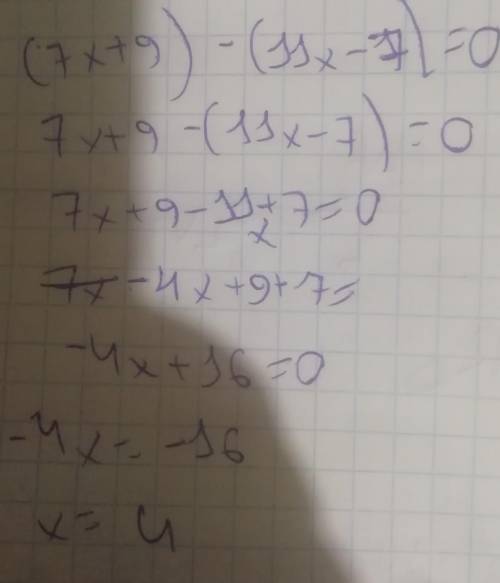 (7x+9) - (11x-7) = 0
7x+9 - (11x-7) = 0
7x+9-11x+7=0
7x -4x+9+7=
-4x+16=0
-4x=-16
x= 4